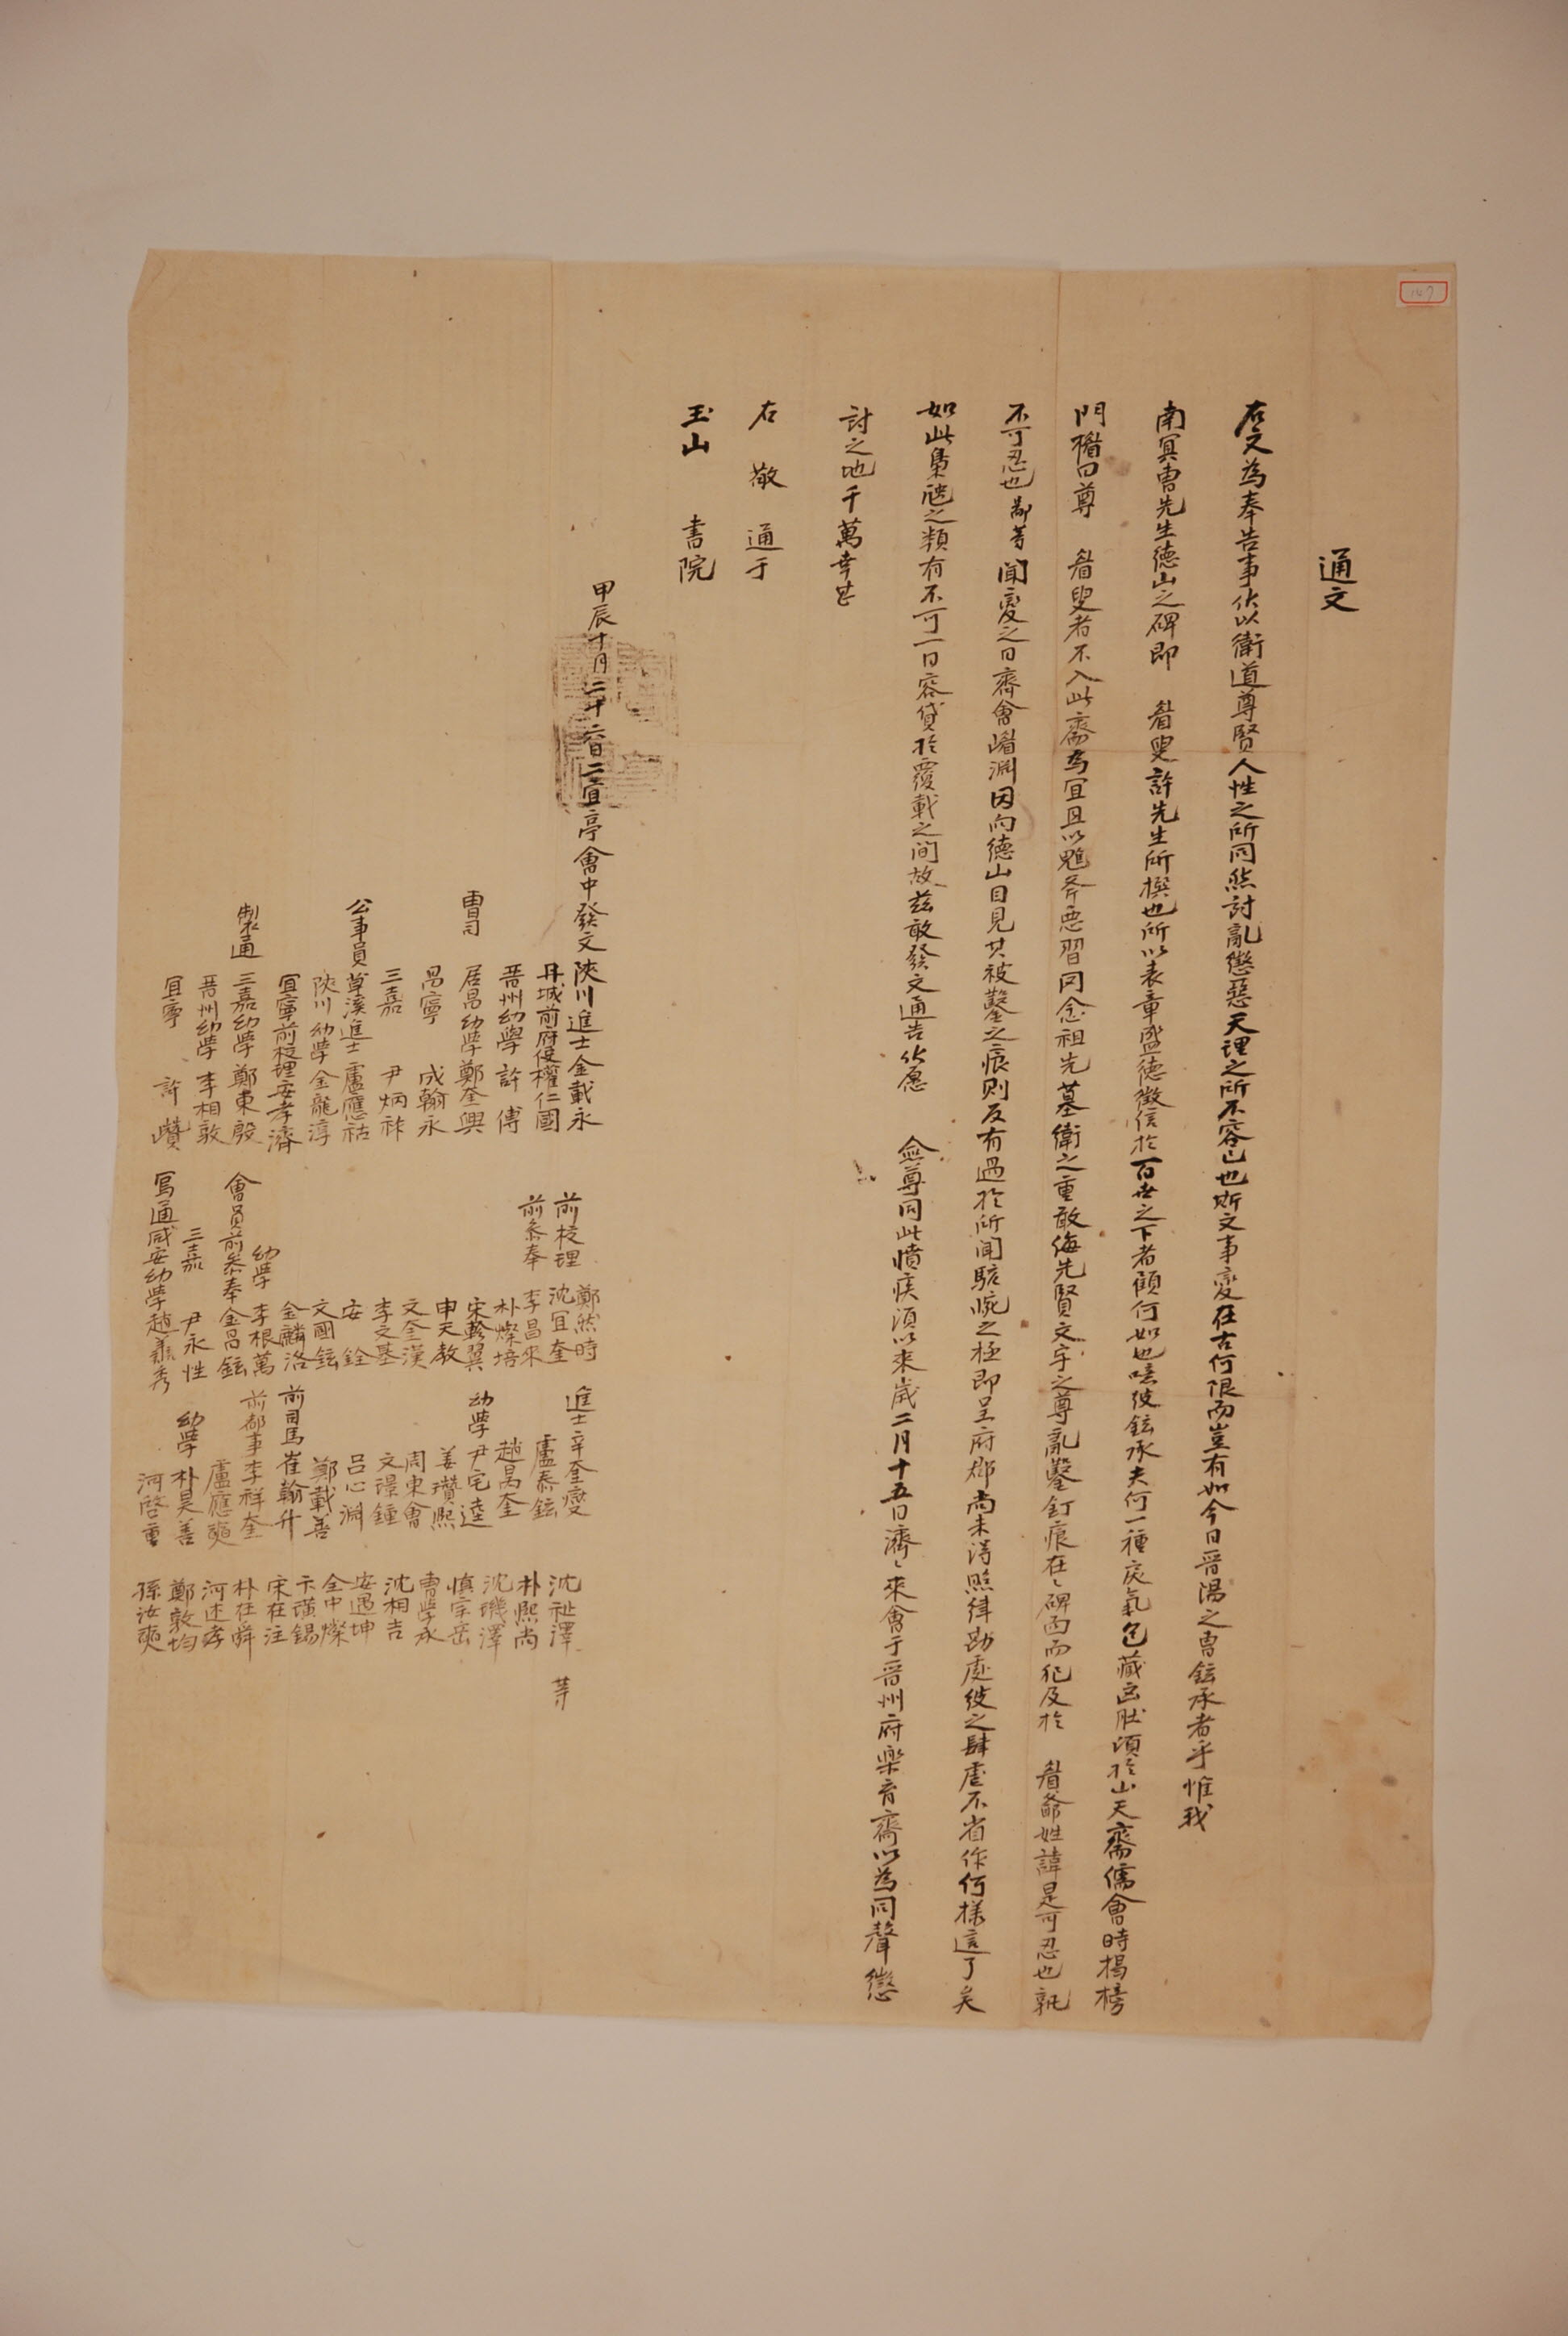 通文
右文為奉告事伏以衛道尊賢人性之所同然討亂懲惡天理之所不容已也斯文事變在古何限而豈有如今日晋陽之曺鉉承者乎惟我
南冥曺先生德山之碑即 眉叟許先生所撰也所以表章盛德徵信於百世之下者顧何如也噫彼鉉承夫何一種戾氣包藏凶肚頃於山天齋儒會時揭榜
門楣曰尊 眉叟者不入此齋為宜且以 斧惡習罔念祖先墓衛之重敢侮先賢文字之尊亂鑿釘痕在〻碑面而犯及於 眉爺姓諱是可忍也孰
不可忍也鄙等聞變之日齊會 淵因向德山目見其被鑿之痕則反有過於所聞駭惋之極即呈府郡尚未得照律勘處彼之肆虐不省作何樣 了矣
如此梟 之類有不可一日容貸於覆載之間故玆敢發文通告伏願 僉尊同此憤疾須以來歲二月十五日濟〻來會于晋州府樂育齋以為同聲懲
討之地千萬幸甚
右敬通于
玉山書院
甲辰十月二十六日二宜亭會中發文陜川進士金載永
丹城前府使權仁國
晋州幼學 許傅
曺司 居昌幼學鄭奎興
昌寧 成翰永
三嘉 尹炳祚
公事員草溪進士盧應祜
陜川幼學金龍淳
宜寧前校理安孝濟
製通 三嘉幼學鄭東殷
晋州幼學李相敦
宜寧 許巑
鄭然時
前校理 沈宜奎
前參奉 李昌來
朴燦培
宋 翼
申天敎
文奎漢
李文基
安銓
文國鉉
金麟洛
幼學 李根萬
會員前參奉金昌鉉
三嘉 尹永性
寫通咸安幼學趙 秀
進士辛奎燮
盧泰鉉
趙昺奎
幼學尹宅逵
姜瓚熙
周東會
文璟鍾
呂心淵
鄭載善
前司馬崔翰升
前都事李祥奎
盧應奭
幼學朴昊善
河啓重
沈祉澤 等
朴熙尚
沈璣澤
愼宗岳
曺學承
沈相吉
安遇坤
全中燦
卞璜錫
宋在注
朴在舜
河述孝
鄭敦均
孫汝奭
147